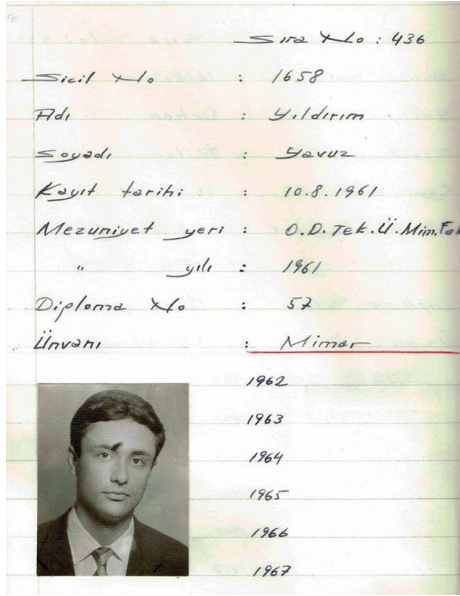 Sıra No : 436
Sicil No : 1658
Adı : Yıldırım
Soyadı : Yavuz
Kayıt tarihi : 10.8.1961
Mezuniyet yeri : O.D.Tek.Ü.Mim.Fak
" yılı : 1961
Diploma No : 57
Ünvanı : Mimar
1962
1963
1964
1965
1966
1967